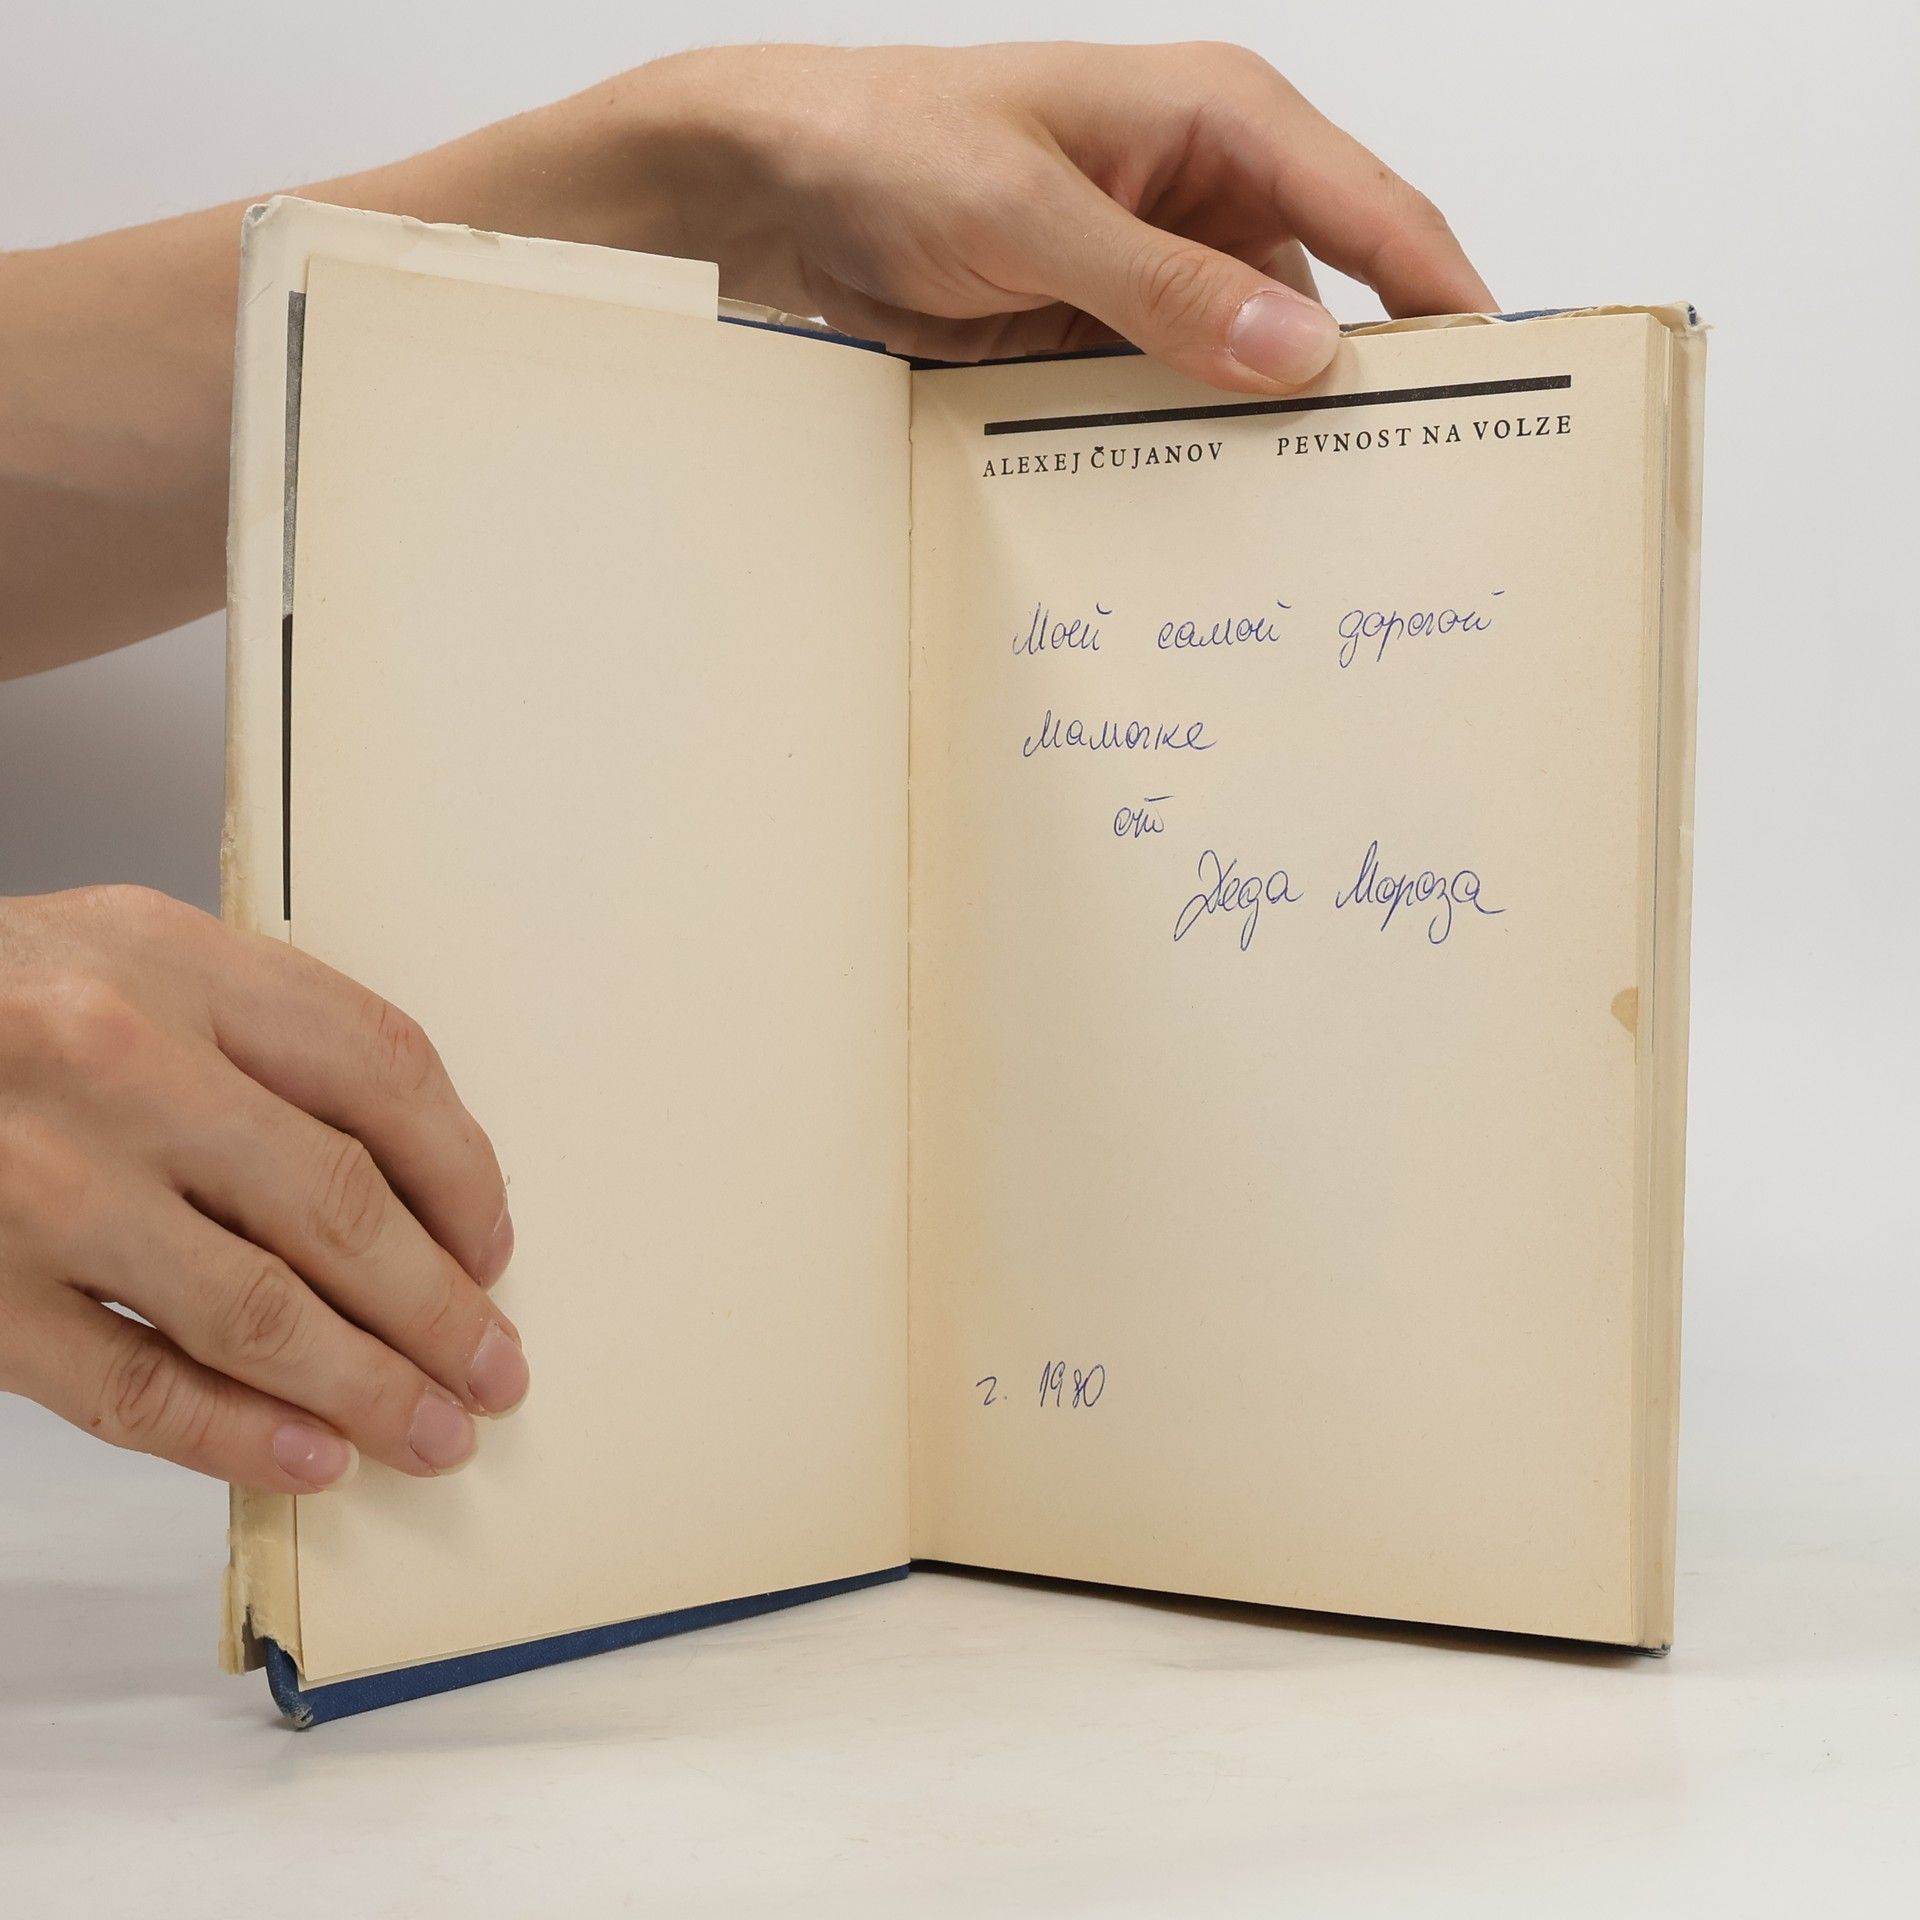 ALEXEJ ČUJANOV PEVNOST NA VOLZE
Моей самой дорогой
мамочке
от
Деда Мороза
г. 1980